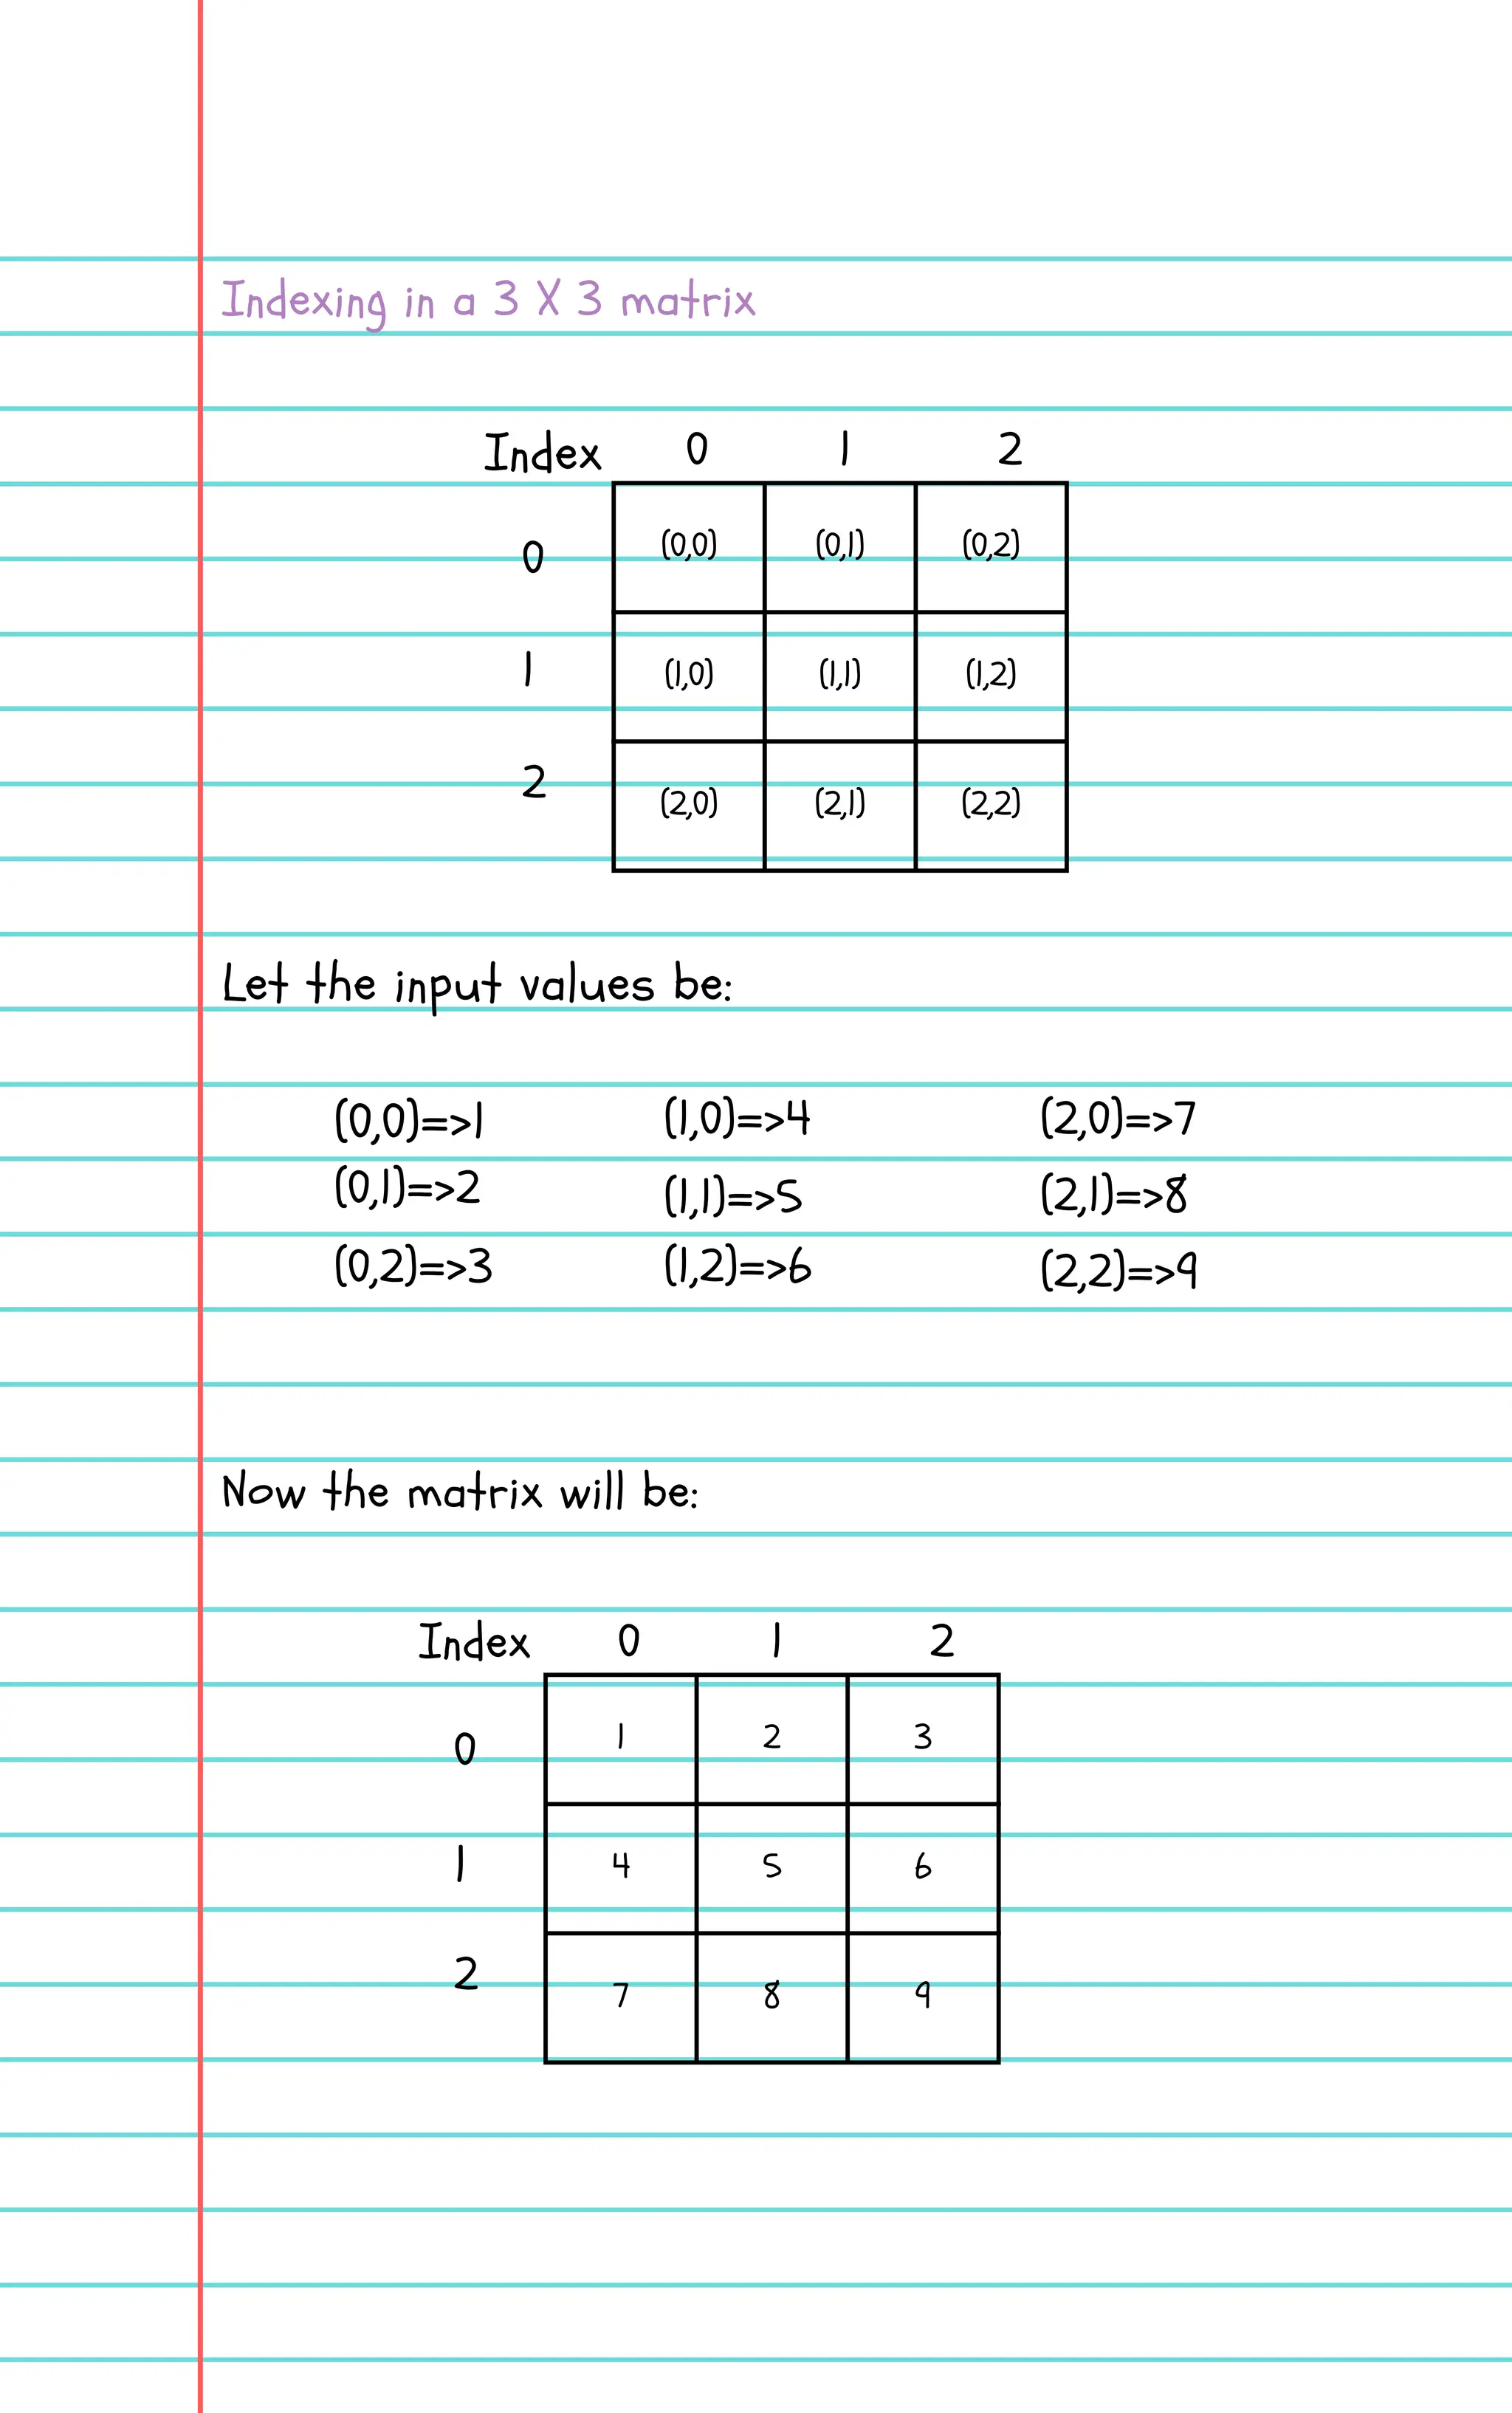 Indexing in a 3 X 3 matrix
Index 0 1 2
0 (0,0) (0,1) (0,2)
1 (1,0) (1,1) (1,2)
2 (2,0) (2,1) (2,2)
Let the input values be:
(0,0)=>1 (1,0)=>4 (2,0)=>7
(0,1)=>2 (1,1)=>5 (2,1)=>8
(0,2)=>3 (1,2)=>6 (2,2)=>9
Now the matrix will be:
Index 0 1 2
0 1 2 3
1 4 5 6
2 7 8 9